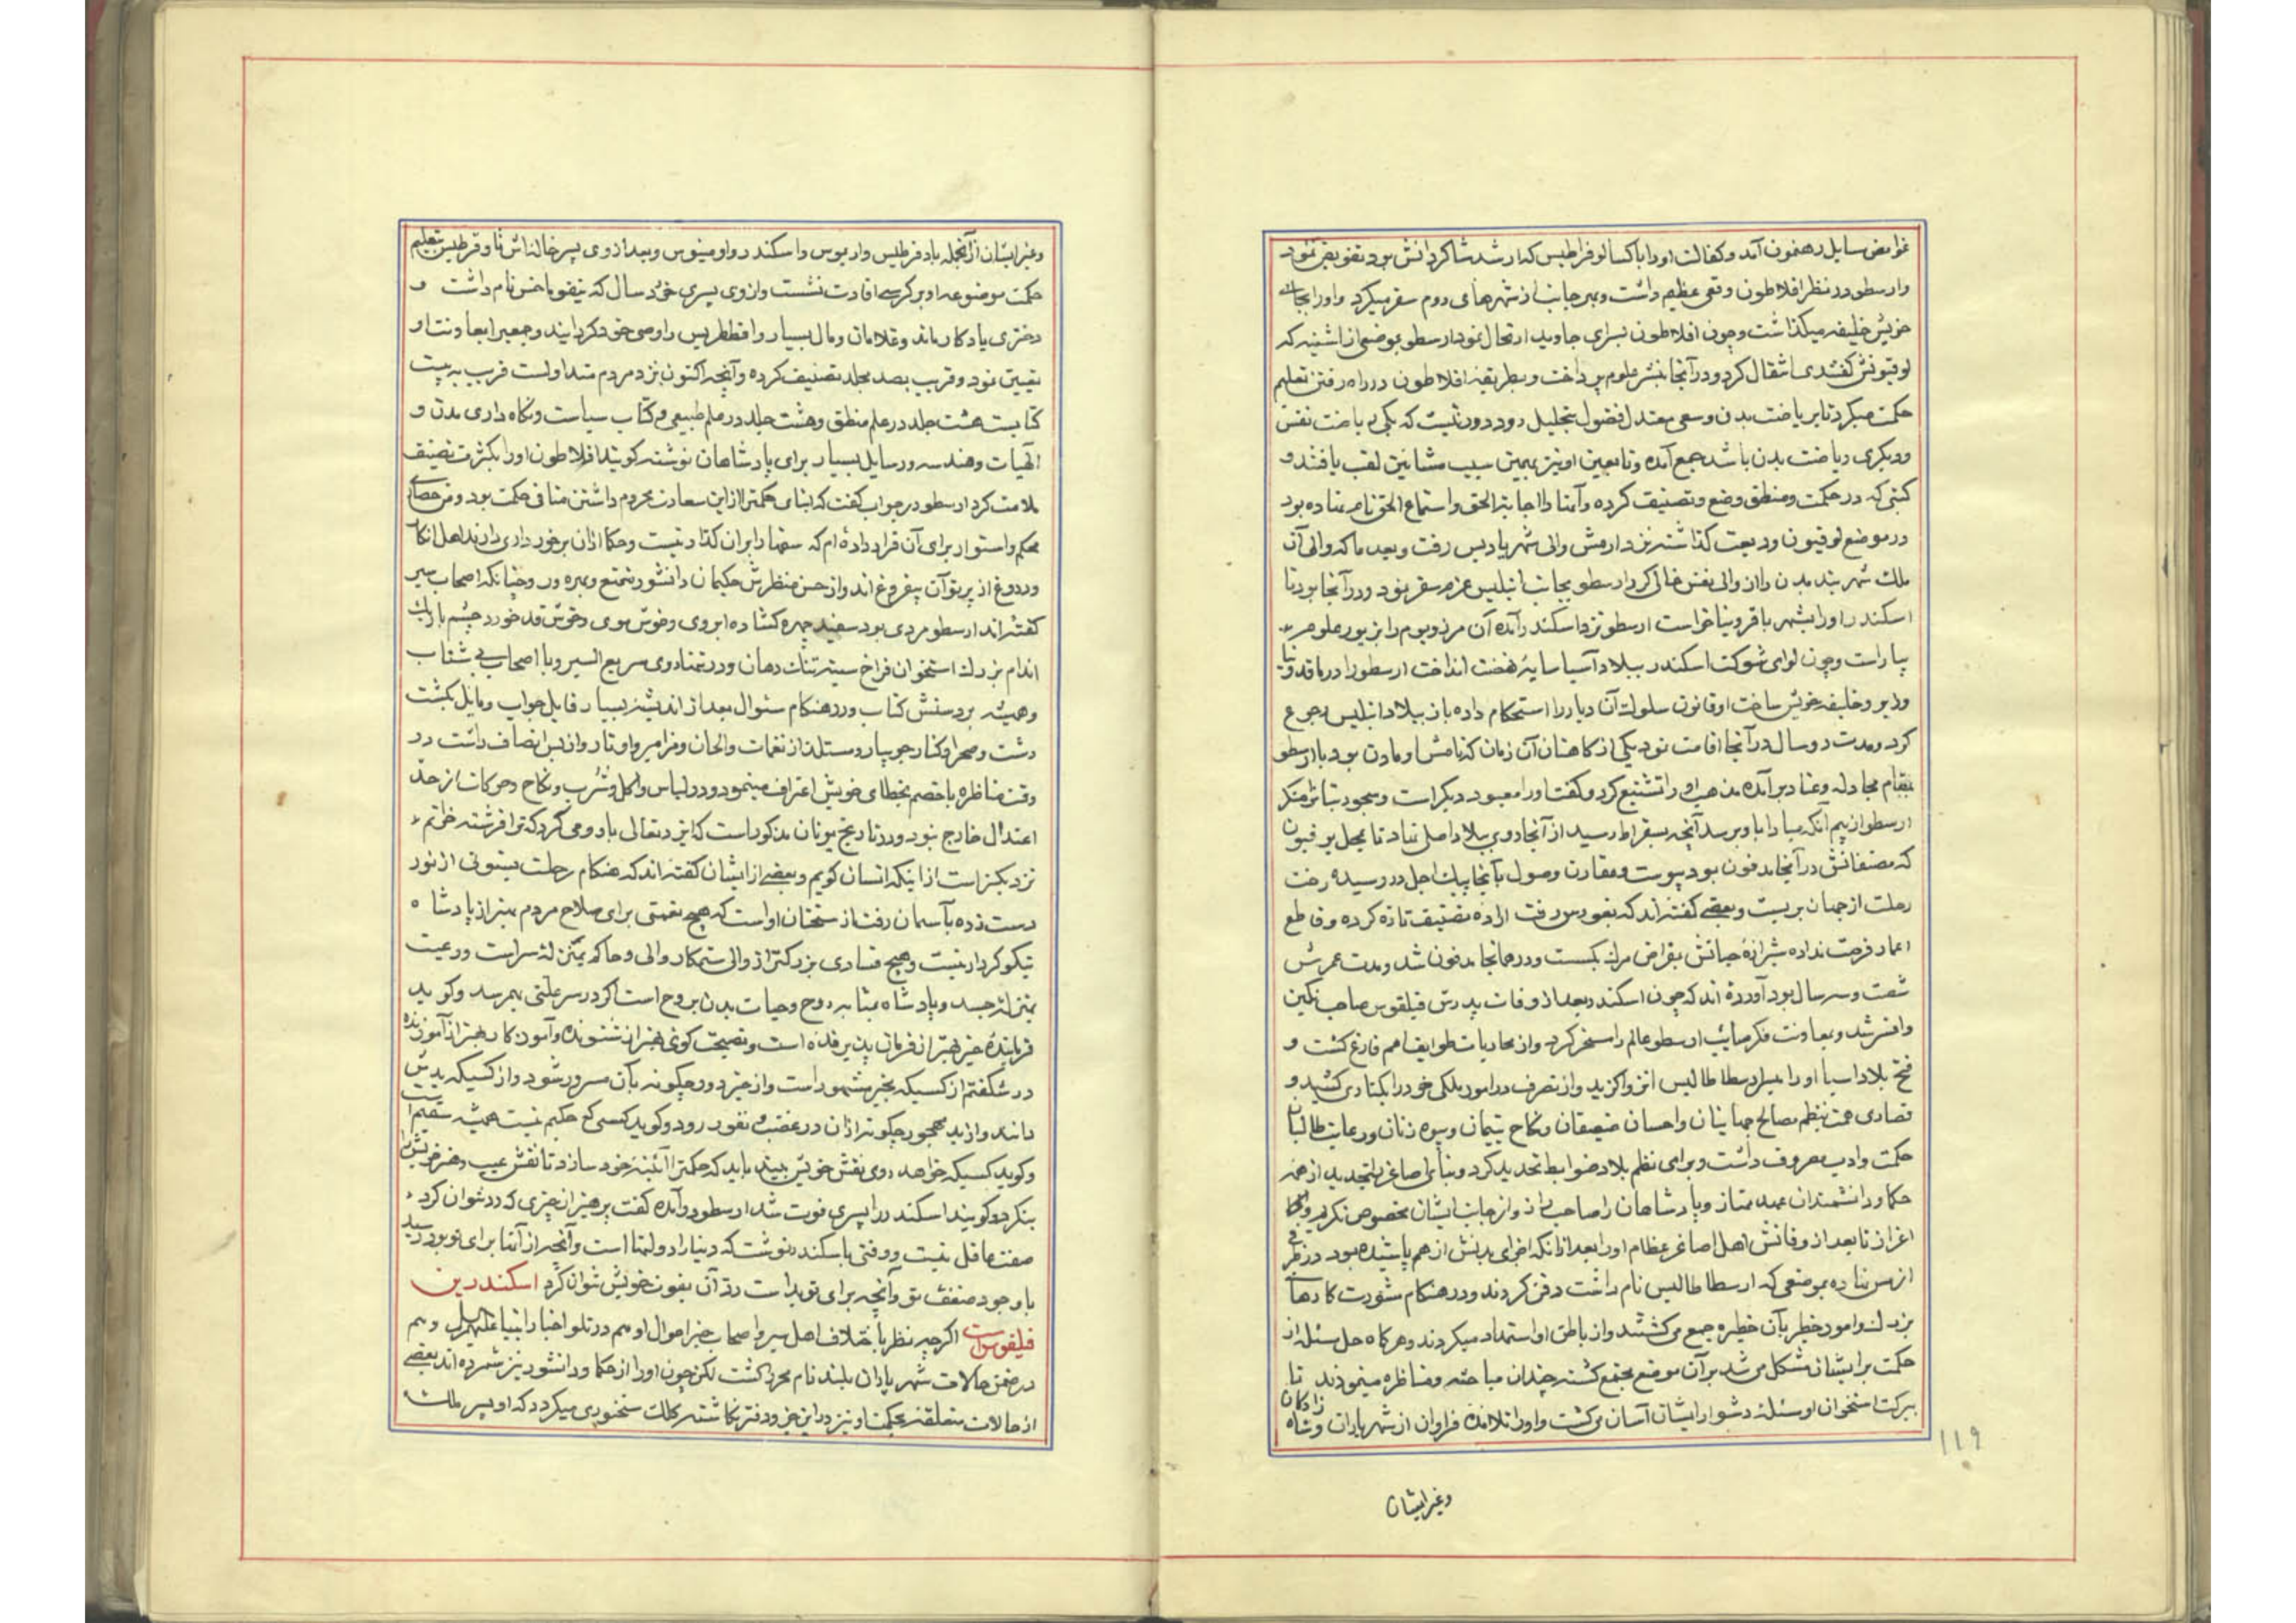 غوامض سایل رهنمون آمد و کفالت او را باکسالوفراطیس که ارشد شاکردانش بود تفویض نمود
وارسطو در نظر افلاطون وقعی عظیم داشت وبهر جانب از شهرهای روم سفر میکرد و او را بجای
خویش خلیفه میکذاشت وچون افلاطون بسرای جاوید ارتحال نمود ارسطو بموضعی از اشینه که
لوقیونش کفتندی انتقال کرد ودر آنجا بنشر علوم پرداخت وبطریقه افلاطون در راه رفتن تعلیم
حکمت میکرد تا بریاضت بدن وسعی معتدل فضول بتحلیل رود ودور نیست که یکی ریاضت نفس
ودیکری ریاضت بدن باشد جمع آمده وتابعین او نیز بهمین سبب مشائین لقب یافتند و
کتبی که در حکمت ومنطق وضع وتصنیف کرده وآنها را اجابة الحق واستماع الحق نام نهاده بود
در موضع لوقیون ودیعت کذاشته نزد ارمش والی شهر یادیس رفت وبعد ما که والی آن
ملک شهر بند بدن را از والی نفس خالی کرد ارسطو بجانب اینلیس عزم سفر نمود ودر آنجا بود تا
اسکندر او را بشهر باقرونیا خواست ارسطو نزد اسکندر آمده آن مرز وبوم را بزیور علوم
بیاراست وچون لوای شوکت اسکندر ببلاد آسیا سایه نهضت انداخت ارسطو را در ماقدونیا
وزیر وخلیفه خویش ساخت او قانون سلوک آن دیار را استحکام داده باز ببلاد اینلیس رجوع
کرد ومدت دو سال در آنجا اقامت نمود یکی از کاهنان آن زمان که نامش اومادن بود با ارسطو
بمقام مجادله وعناد برآمده مذهب او را تشنیع کرد وکفت او را معبود دیکر است وسجود بتان را منکر
ارسطو از بیم آنکه مبادا باو برسد آنچه بسقراط رسید از آنجا روی ببلاد اصلی نهاد تا بمحل برفیون
که مصنفاتش در آنجا مدفون بود پیوست ومقارن وصول بآنجا پیک اجل در رسیده رخت
رحلت از جهان بربست وبعضی کفته اند که بغورس رفت اراده تصنیف تازه کرده وقاطع
اعمار فرصت نداده شیرازه حیاتش بمقراض مرک بکسست ودر همانجا مدفون شد ومدت عمرش
شصت وسه سال بود آورده اند که چون اسکندر بعد از وفات پدرش فیلقوس صاحب نکین
وافسر شد وبمعاونت فکر صایب ارسطو عالم را مسخر کرد واز محاربات طوایف امم فارغ کشت و
فتح بلاد آسیا او را میسر ارسطاطالیس انزوا کزید واز تصرف در امور ملکی خود را بکناری کشید و
قصارای همت بنظم مصالح جهانیان واحسان ضعیفان ونکاح یتیمان وبیوه زنان ورعایت طالبان
حکمت وادب مصروف داشت وبرای نظم بلاد ضوابط تحدید کرد وبنای اصاغر را تجدید از همه
حکما ودانشمندان عهد ممتاز وپادشاهان را صاحب راز واز جانب ایشان مخصوص تکریم والحا
اعزاز تا بعد از وفاتش اهل اصاغر عظام او را بعد از آنکه اجزای بدنش از هم پاشیده بود در ظرفی
از مس نهاده بموضعی که ارسطاطالیس نام داشت دفن کردند ودر هنکام مشورت کارهای
بزرک وامور خطیر بآن حظیره جمع می کشتند واز باطن او استمداد میکردند وهر کاه حل مسئله از
حکمت بر ایشان مشکل می شد بر آن موضع مجتمع کشته چندان مباحثه ومناظره مینمودند تا
ببرکت استخوان او مسئله دشوار ایشان آسان می کشت واو را تلامذه فراوان از شهریاران وشاه زادکان
۱۱۹
وغیر ایشان
وغیر ایشان از آنجمله بادفرطیس واربوس واسکندر رواومینوس وبعد از وی پسر خاله اش ثاوفرطیس بتعلیم
حکمت موضوعه او بر کرسی افادت نشست واز وی پسری خورد سال که نیقوماخس نام داشت و
دختری یادکار ماند وغلامان ومال بسیار وانطاطریس را وصی خود کردانید وجمعی را بمعاونت او
تعیین نمود وقریب بصد مجلد تصنیف کرده وآنچه اکنون نزد مردم متداولست قریب به بیست
کتابست هشت جلد در علم منطق وهشت جلد در علم طبیعی وکتاب سیاست ونکاه داری مدن و
الهیات وهندسه ورسایل بسیار برای پادشاهان نوشته کویند افلاطون او را بکثرت تصنیف
ملامت کرد ارسطو در جواب کفت که ابنای حکمت را از این سعادت محروم داشتن منافی حکمت بود ومن حصاری
محکم واستوار برای آن قرار داده ام که سفها را بر آن کذار نیست وحکما از آن برخورداری دارند اهل انکار
ودروغ از پرتو آن بیفروغ اند واز حسن منظرش حکیمان دانشور متمتع وبهره ور وچنانکه اصحاب سیر
کفته اند ارسطو مردی بود سفید چهره کشاده ابروی وخوش موی وخوش قد خورد چشم باریک
اندام بزرک استخوان فراخ سینه تنک دهان ودر تنهاروی سریع السیر وبا اصحاب بی شتاب
وهمیشه بر دستش کتاب ودر هنکام سئوال بعد از اندیشه بسیار قایل جواب ومایل بکشت
دشت وصحرا وکنار جویبار ومستلذ از نغمات والحان ومزامیر واوتار واز بس انصاف داشت در
وقت مناظره با خصم بخطای خویش اعتراف مینمود ودر لباس واکل وشرب ونکاح وحرکات از حد
اعتدال خارج نبود ودر تاریخ یونان مذکور است که ایزد تعالی باو وحی کرد که ترا فرشته خوانم
نزدیکتر است از اینکه انسان کویم وبعضی از ایشان کفته اند که هنکام رحلت بستونی از نور
دست زده بآسمان رفت از سخنان او است که هیچ نعمتی برای صلاح مردم بهتر از پادشاه
نیکو کردار نیست وهیچ فسادی بزرکتر از والی ستمکار والی وحاکم بمنزله سراست ورعیت
بمنزله جسد وپادشاه بمثابه روح وحیات بدن بروح است اکر در سر علتی بهم رسد وکوید
فرماینده خیر بهتر از فرمان پذیرفته است ونصیحت کوی بهتر از شنونده وآموزکار بهتر از آموزنده
در شکفتم از کسیکه بخیر مشهور است واز خیر دور چکونه بآن مسرور شود واز کسیکه بدش
دانند واز بد مهجور چکونه از آن در غضب ونفور رود وکوید کسی که حکیم نیست همیشه سقیم است
وکوید کسیکه خواهد روی نفس خویش بیند باید که حکمت را آئینه خود سازد تا نفس عیب وهنر خویش را
بنکرد وکویند اسکندر را پسری فوت شد ارسطو در آمده کفت پرهیز از چیزی که رد نتوان کرد
صفت عاقل نیست ووقتی باسکندر نوشت که دنیا را دولتها است وآنچه از آنها برای تو بود رسید
با وجود ضعف تو وآنچه برای تو بد است رد آن بقوت خویش نتوان کرد اسکندر بن
فیلقوس است اکرچه نظر باختلاف اهل سیر واصحاب خبر احوال او هم در تلو اخبار انبیا علیهم السلام وهم
در ضمن حالات شهریاران بلند نام محرر کشت لکن چون او را از حکما ودانشور نیز شمرده اند بعضی
از حالات متعلقه بحکمت او نیز در این جزو دفتر نکاشته کلک سخنوری میکردد که او پسر ملک